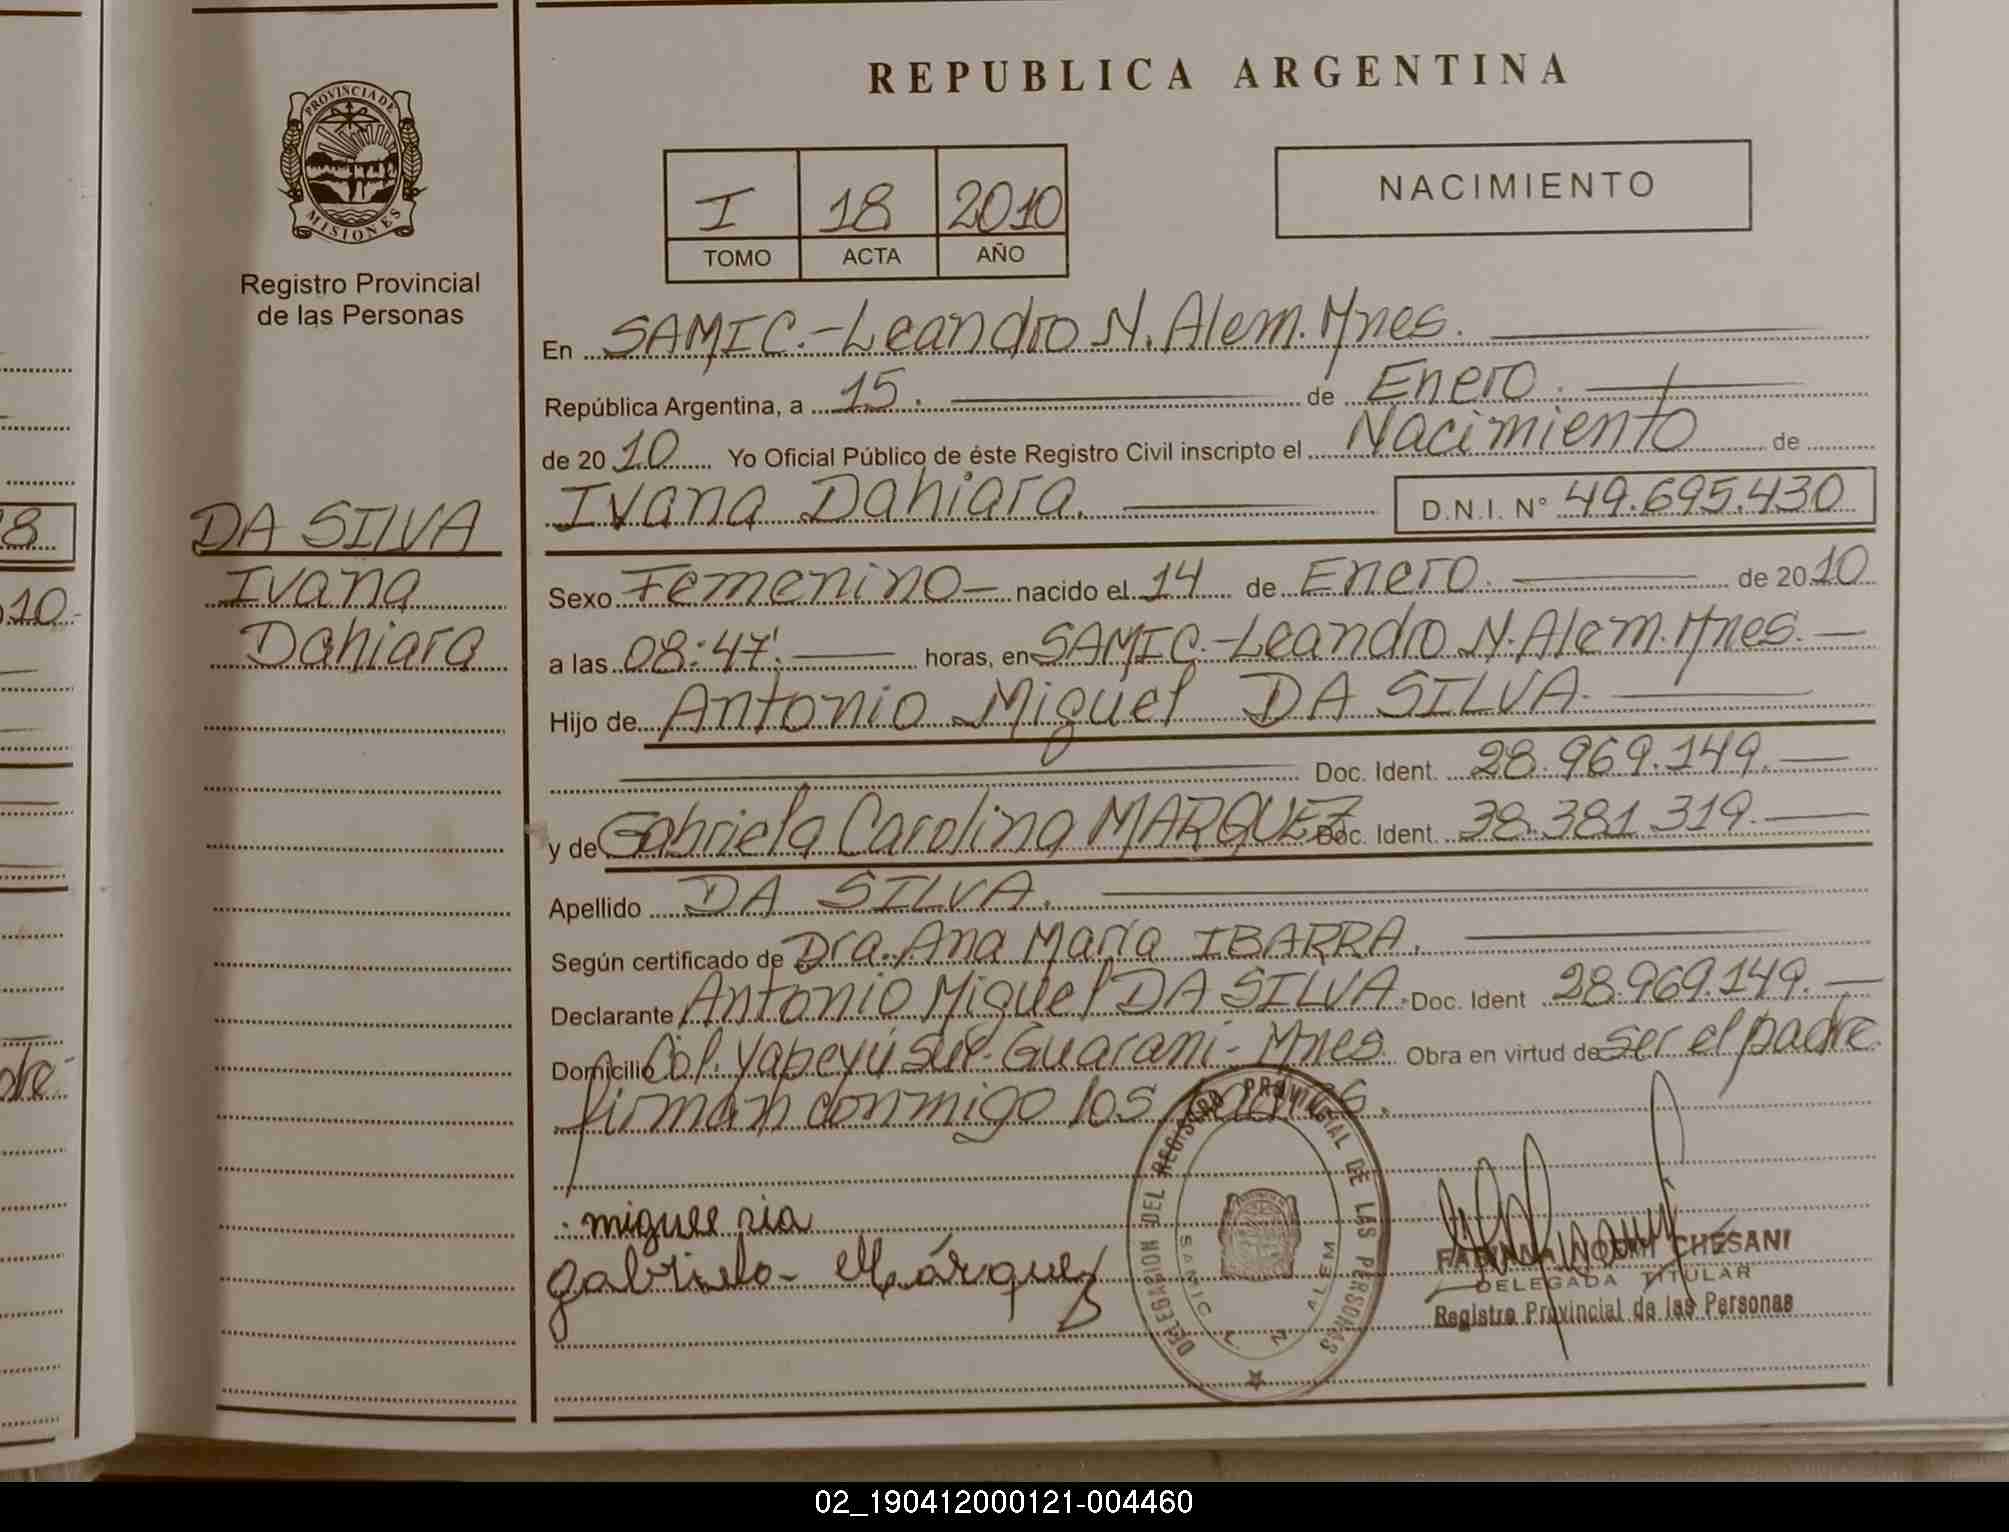 REPUBLICA ARGENTINA
PROVINCIA DE
MISIONES
Registro Provincial
de las Personas
I 18 2010
TOMO ACTA AÑO
NACIMIENTO
En SAMIC.-Leandro N. Alem. Mnes.
República Argentina, a 15. de Enero.
de 2010 Yo Oficial Público de éste Registro Civil inscripto el Nacimiento de
Ivana Dahiara. D.N.I. N° 49.695.430
DA SILVA
Ivana
Dahiara
Sexo Femenino- nacido el 14 de Enero. de 2010
a las 08:47'. horas, en SAMIC.-Leandro N. Alem. Mnes.
Hijo de Antonio Miguel DA SILVA.
Doc. Ident. 28.969.149.
y de Gabriela Carolina MARQUEZ Doc. Ident. 38.381.319.
Apellido DA SILVA.
Según certificado de Dra. Ana María IBARRA.
Declarante Antonio Miguel DA SILVA. Doc. Ident 28.969.149.
Domicilio Col. Yabeyú sur. Guaraní - Mnes. Obra en virtud de ser el padre.
firman conmigo los
gabriela Márquez
DELEGACION DEL REGISTRO PROVINCIAL DE LAS PERSONAS
SAMIC L N ALEM
FABIANA NOEMI CHESANI
DELEGADA TITULAR
Registro Provincial de las Personas
8
10-
dre.
02_190412000121-004460